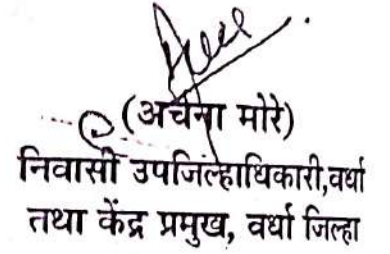 (अर्चना मोरे)
निवासी उपजिल्हाधिकारी,वर्धा
तथा केंद्र प्रमुख, वर्धा जिल्हा